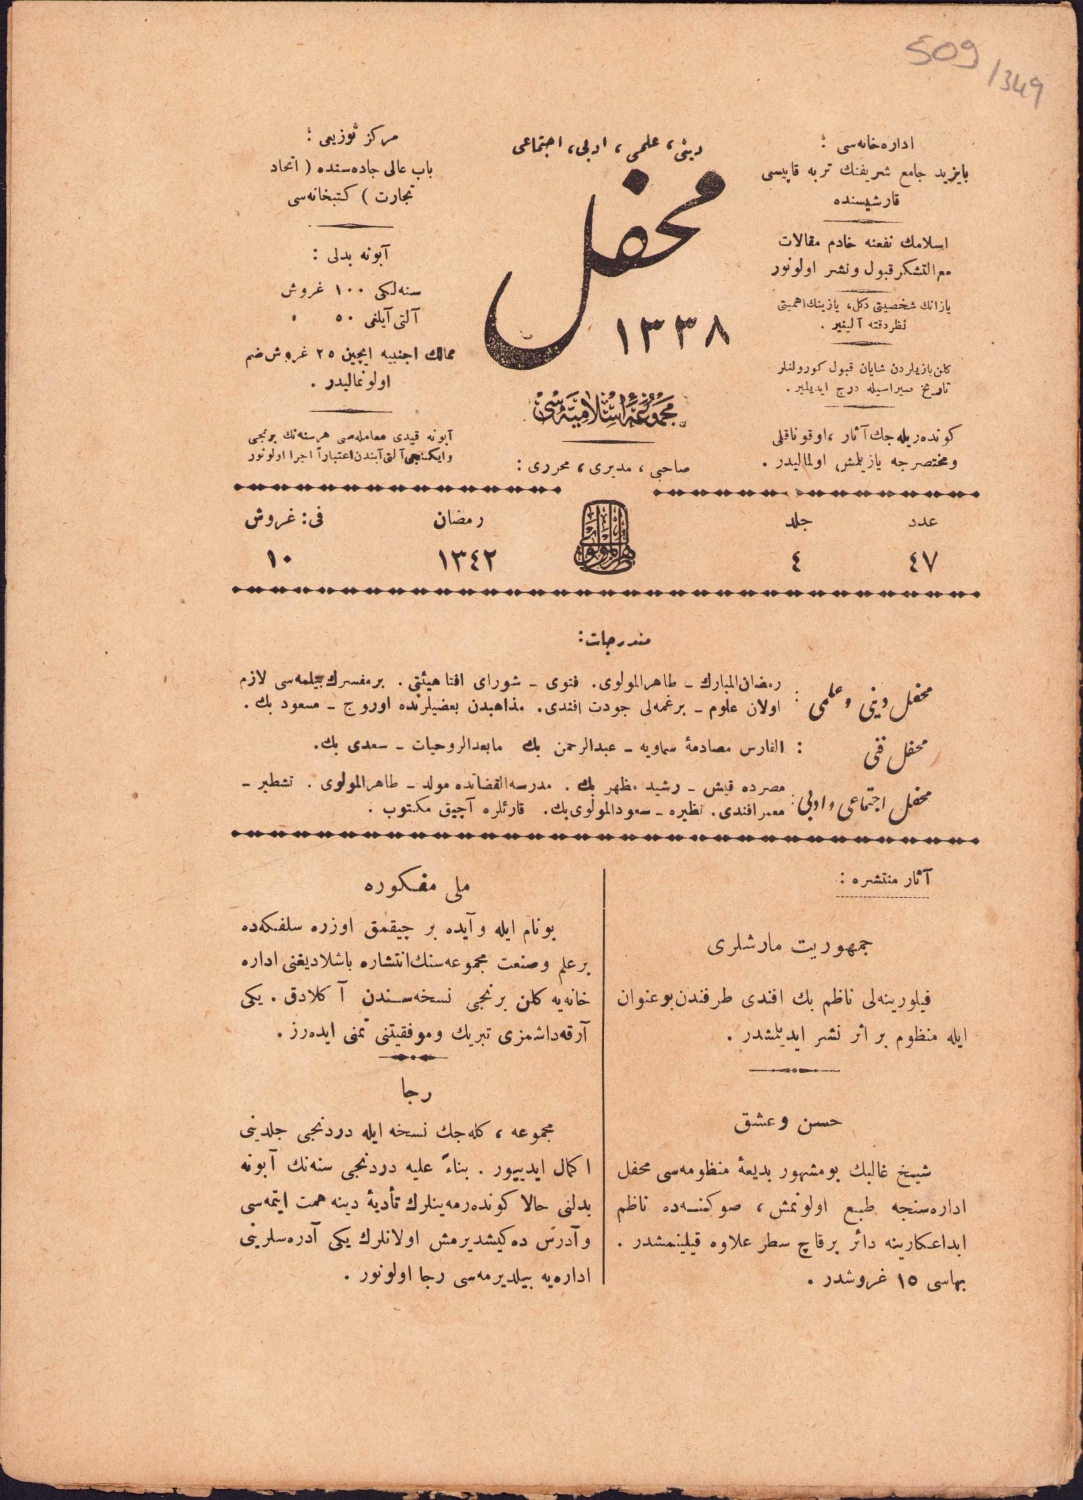 509/349
اداره‌خانه‌سی :
بايزيد جامع شريفنك تربه قاپيسی
قارشيسنده
اسلامك نفعنه خادم مقالات
مع‌التشكر قبول ونشر اولونور
يازانك شخصيتی دكل، يازينك اهميتی
نظر دقته آلينير .
كلن يازيلردن شايان قبول كورولنلر
تاريخ صيراسيله درج ايديلير .
كونده‌ريله‌جك آثار ، اوقوناقلی
ومختصرجه يازيلمش اولمالیدر .
دينی ، علمی ، ادبی ، اجتماعی
محفل
١٣٣٨
مجموعهٔ اسلاميه‌سی
صاحبی ، مديری ، محرری :
طاهرالمولوی
مركز توزيعی :
باب عالی جاده‌سنده ( اتحاد
تجارت ) كتبخانه‌سی
آبونه بدلی :
سنه‌لكی ١٠٠ غروش
آلتی آيلغی ٥٠ »
ممالك اجنبيه ايچين ٢٥ غروش ضم
اولونمالیدر .
آبونه قيدی معامله‌سی هر سنه‌نك برنجی
وايكنجی آلتی آيندن اعتباراً اجرا اولونور
عدد جلد رمضان فی : غروش
٤٧ ٤ ١٣٤٢ ١٠
مندرجات :
محفل دينی وعلمی : رمضان المبارك ـ طاهرالمولوی . فتوی ـ شورای افتا هيئتی . بر مفسرك بيلمه‌سی لازم
اولان علوم ـ برغمه‌لی جودت افندی . مذاهبدن بعضيلرنده اوروج ـ مسعود بك .
محفل فنی : الفارس مصادمهٔ سماويه ـ عبدالرحمن بك مابعدالروحيات ـ سعدی بك .
محفل اجتماعی وادبی : مصرده قيش ـ رشيد مظهر بك . مدرسه‌القضاتده مولد ـ طاهرالمولوی . تشطير ـ
معمر افندی . نظيره ـ سعودالمولوی بك . قارئلره آچيق مكتوب .
آثار منتشره :
جمهوريت مارشلری
فيلورينه‌لی ناظم بك افندی طرفندن بو عنوان
ايله منظوم بر اثر نشر ايديلمشدر .
حسن وعشق
شيخ غالبك بو مشهور بديعهٔ منظومه‌سی محفل
اداره‌سنجه طبع اولونمش ، صوكنـه‌ده ناظم
ابداعكارينه دائر برقاچ سطر علاوه قيلينمشدر .
بهاسی ١٥ غروشدر .
ملی مفكوره
بو نام ايله وآيده بر چيقمق اوزره سلفكه‌ده
بر علم وصنعت مجموعه‌سنك انتشاره باشلاديغنی اداره
خانه‌يه كلن برنجی نسخه‌سـندن آكلادق . يكی
آرقه‌داشمزی تبريك وموفقيتنی تمنی ايده‌رز .
رجا
مجموعه ، كله‌جك نسخه ايله دردنجی جلدينی
اكمال ايدييور . بناءً عليه دردنجی سنه‌نك آبونه
بدلنی حالا كوندرمه‌ينلرك تأديهٔ دينه همت ايتمه‌سی
وآدرس ده‌كيشديرمش اولانلرك يكی آدره‌سلرينی
اداره‌يه بيلديرمه‌سی رجا اولونور .